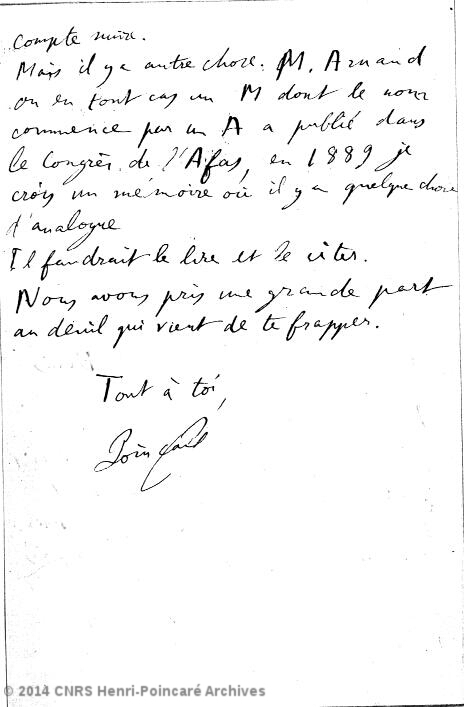 compte mien.
Mais il y a autre chose. M. Arnaud
ou en tout cas un M dont le nom
commence par un A a publié dans
le Congrès de l'Afas, en 1889 je
crois un mémoire où il y a quelque chose
d'analogue
Il faudrait le lire et le citer.
Nous avons pris une grande part
au deuil qui vient de te frapper.
Tout à toi,
Poincaré
© 2014 CNRS Henri-Poincaré Archives